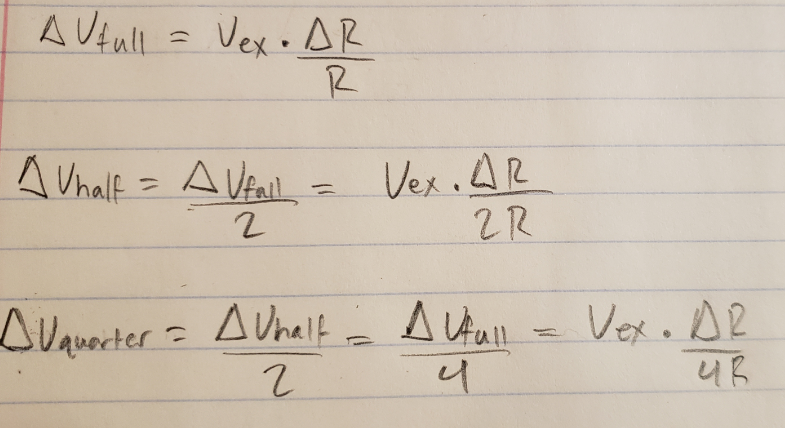 ΔVfull = Vex · ΔR/R
ΔVhalf = ΔVfull/2 = Vex · ΔR/2R
ΔVquarter = ΔVhalf/2 = ΔVfull/4 = Vex · ΔR/4R